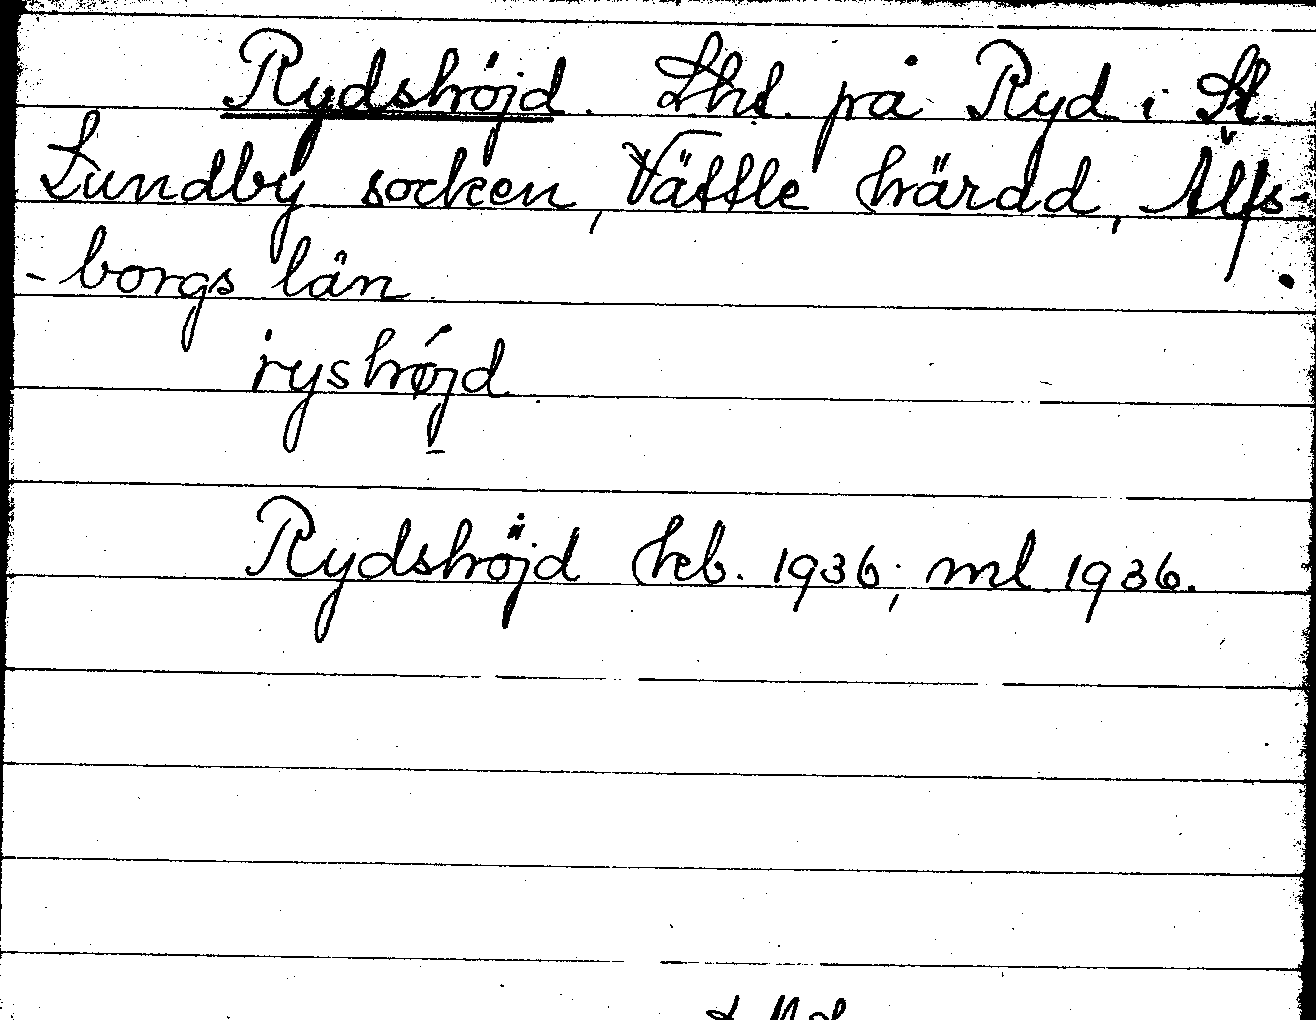 Rydshöjd. Lht. på Ryd i St.
Lundby socken, Vättle härad, Älfs-
-borgs län
ryshøjd
Rydshöjd hcb. 1936; ml 1936.